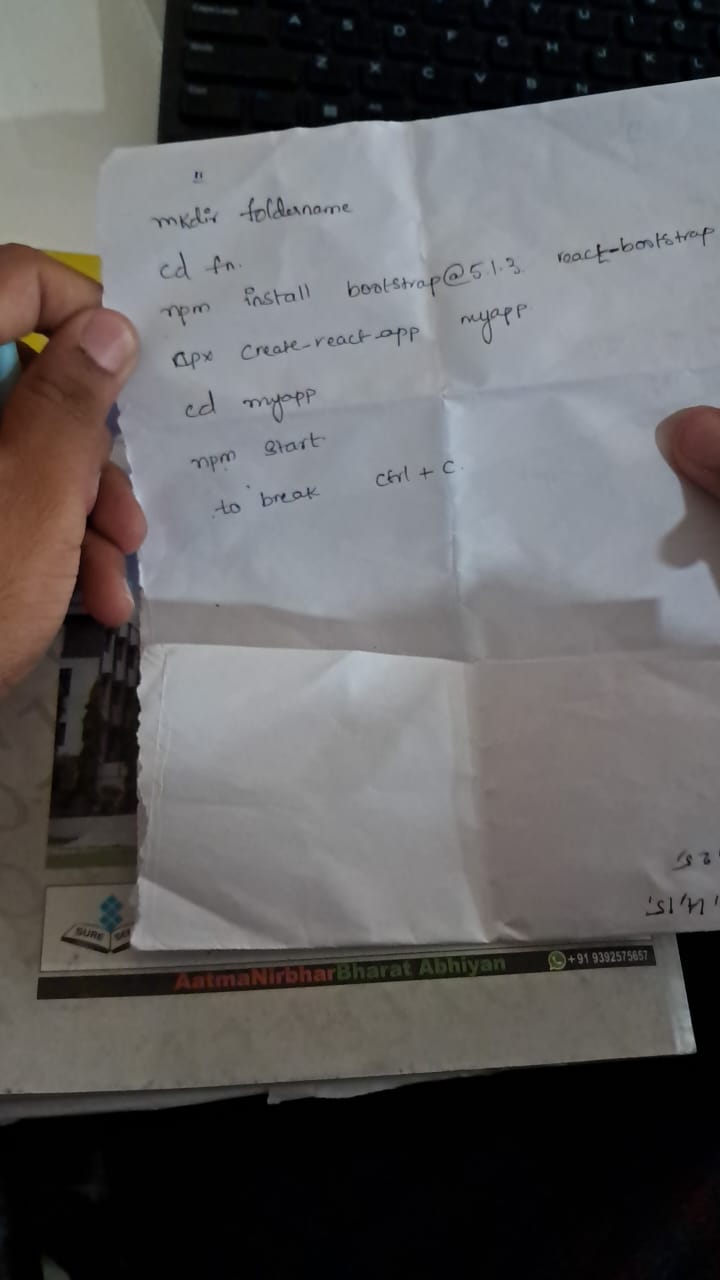 "
mkdir foldername
cd fn.
npm install bootstrap@5.1.3 react-bootstrap
npx create-react-app myapp
cd myapp
npm start
to break ctrl + c.
SURE
AatmaNirbharBharat Abhiyan
+91 9392575657